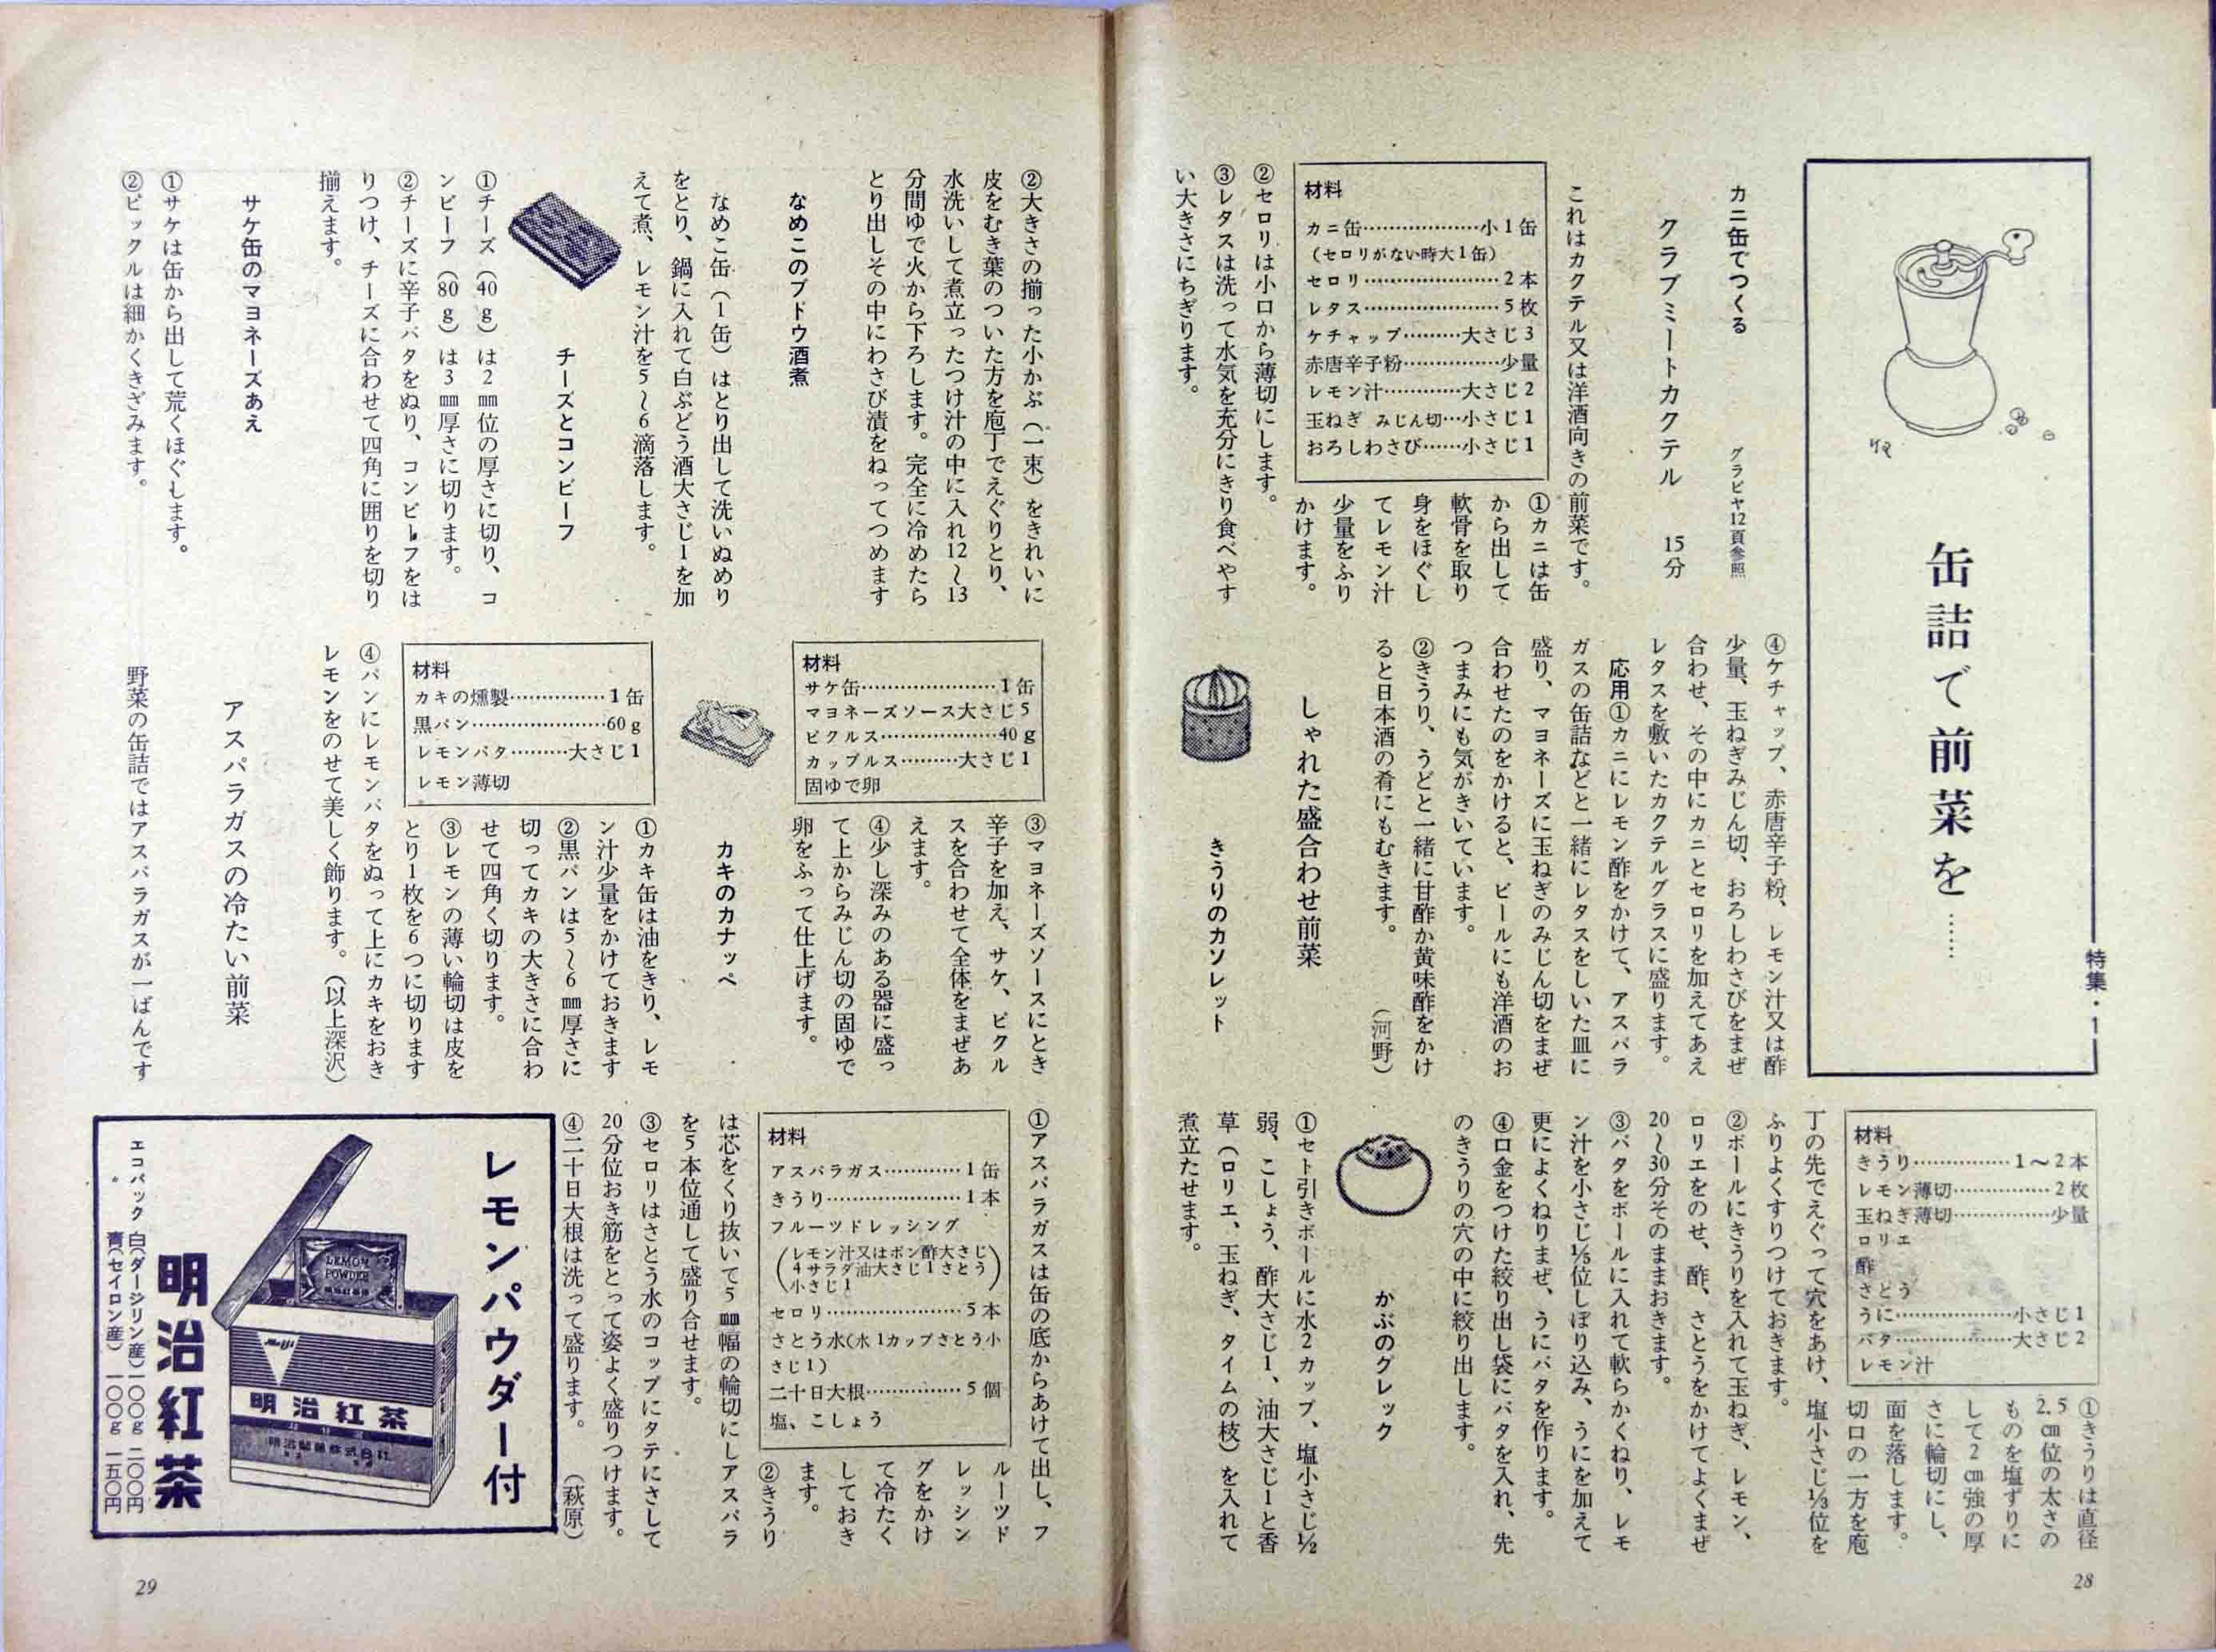 特集・1
缶詰で前菜を……
カニ缶でつくる
グラビヤ12頁参照
クラブミートカクテル　15分
これはカクテル又は洋酒向きの前菜です。
材料
カニ缶………………小1缶
（セロリがない時大1缶）
セロリ…………………2本
レタス…………………5枚
ケチャップ………大さじ3
赤唐辛子粉……………少量
レモン汁…………大さじ2
玉ねぎ　みじん切…小さじ1
おろしわさび……小さじ1
①カニは缶
から出して
軟骨を取り
身をほぐし
てレモン汁
少量をふり
かけます。
②セロリは小口から薄切にします。
③レタスは洗って水気を充分にきり食べやす
い大きさにちぎります。
④ケチャップ、赤唐辛子粉、レモン汁又は酢
少量、玉ねぎみじん切、おろしわさびをまぜ
合わせ、その中にカニとセロリを加えてあえ
レタスを敷いたカクテルグラスに盛ります。
応用①カニにレモン酢をかけて、アスパラ
ガスの缶詰などと一緒にレタスをしいた皿に
盛り、マヨネーズに玉ねぎのみじん切をまぜ
合わせたのをかけると、ビールにも洋酒のお
つまみにも気がきいています。
②きうり、うどと一緒に甘酢か黄味酢をかけ
ると日本酒の肴にもむきます。　（河野）
しゃれた盛合わせ前菜
きうりのカソレット
材料
きうり……………1〜2本
レモン薄切……………2枚
玉ねぎ薄切……………少量
ロリエ
酢
さとう
うに………………小さじ1
バタ………………大さじ2
レモン汁
①きうりは直径
2.5㎝位の太さの
ものを塩ずりに
して2㎝強の厚
さに輪切にし、
面を落します。
切口の一方を庖
丁の先でえぐって穴をあけ、塩小さじ⅓位を
ふりよくすりつけておきます。
②ボールにきうりを入れて玉ねぎ、レモン、
ロリエをのせ、酢、さとうをかけてよくまぜ
20〜30分そのままおきます。
③バタをボールに入れて軟らかくねり、レモ
ン汁を小さじ⅕位しぼり込み、うにを加えて
更によくねりまぜ、うにバタを作ります。
④口金をつけた絞り出し袋にバタを入れ、先
のきうりの穴の中に絞り出します。
かぶのグレック
①セト引きボールに水2カップ、塩小さじ½
弱、こしょう、酢大さじ1、油大さじ1と香
草（ロリエ、玉ねぎ、タイムの枝）を入れて
煮立たせます。
28
②大きさの揃った小かぶ（一束）をきれいに
皮をむき葉のついた方を庖丁でえぐりとり、
水洗いして煮立ったつけ汁の中に入れ12〜13
分間ゆで火から下ろします。完全に冷めたら
とり出しその中にわさび漬をねってつめます
なめこのブドウ酒煮
なめこ缶（1缶）はとり出して洗いぬめり
をとり、鍋に入れて白ぶどう酒大さじ1を加
えて煮、レモン汁を5〜6滴落します。
チーズとコンビーフ
①チーズ（40g）は2㎜位の厚さに切り、コ
ンビーフ（80g）は3㎜厚さに切ります。
②チーズに辛子バタをぬり、コンビーフをは
りつけ、チーズに合わせて四角に囲りを切り
揃えます。
サケ缶のマヨネーズあえ
①サケは缶から出して荒くほぐします。
②ピックルは細かくきざみます。
材料
サケ缶…………………1缶
マヨネーズソース大さじ5
ピクルス………………40g
カップルス………大さじ1
固ゆで卵
③マヨネーズソースにとき
辛子を加え、サケ、ピクル
スを合わせて全体をまぜあ
えます。
④少し深みのある器に盛っ
て上からみじん切の固ゆで
卵をふって仕上げます。
カキのカナッペ
材料
カキの燻製……………1缶
黒パン…………………60g
レモンバタ………大さじ1
レモン薄切
①カキ缶は油をきり、レモ
ン汁少量をかけておきます
②黒パンは5〜6㎜厚さに
切ってカキの大きさに合わ
せて四角く切ります。
③レモンの薄い輪切は皮を
とり1枚を6つに切ります
④パンにレモンバタをぬって上にカキをおき
レモンをのせて美しく飾ります。（以上深沢）
アスパラガスの冷たい前菜
野菜の缶詰ではアスパラガスが一ばんです
①アスパラガスは缶の底からあけて出し、フ
ルーツド
レッシン
グをかけ
て冷たく
しておき
ます。
材料
アスパラガス…………1缶
きうり…………………1本
フルーツドレッシング
（レモン汁又はポン酢大さじ
4サラダ油大さじ1さとう
小さじ1）
セロリ…………………5本
さとう水(水1カップさとう小
さじ1)
二十日大根……………5個
塩、こしょう
②きうり
は芯をくり抜いて5㎜幅の輪切にしアスパラ
を5本位通して盛り合せます。
③セロリはさとう水のコップにタテにさして
20分位おき筋をとって姿よく盛りつけます。
④二十日大根は洗って盛ります。　（萩原）
レモンパウダー付
LEMON
POWDER
明治紅茶
Meiji
明治紅茶
明治製菓株式会社
明治紅茶
エコパック　白(ダージリン産)一〇〇g　二〇〇円
〃　青(セイロン産)　一〇〇g　一五〇円
29